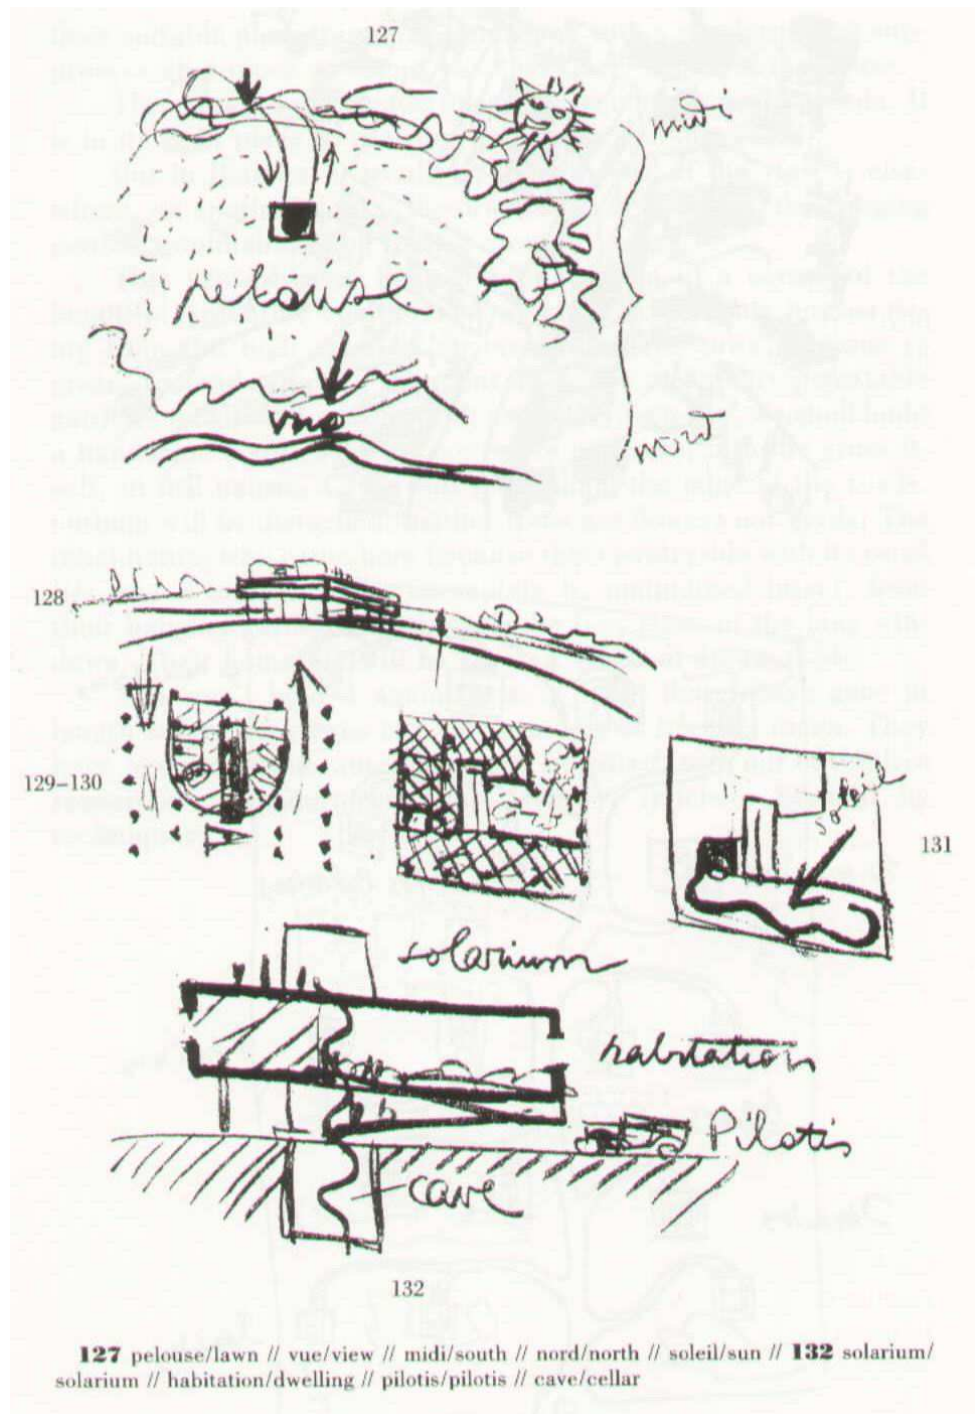 127
midi
pelouse
vue
nord
128
129–130
131
solarium
habitation
Pilotis
cave
132
127 pelouse/lawn // vue/view // midi/south // nord/north // soleil/sun // 132 solarium/
solarium // habitation/dwelling // pilotis/pilotis // cave/cellar